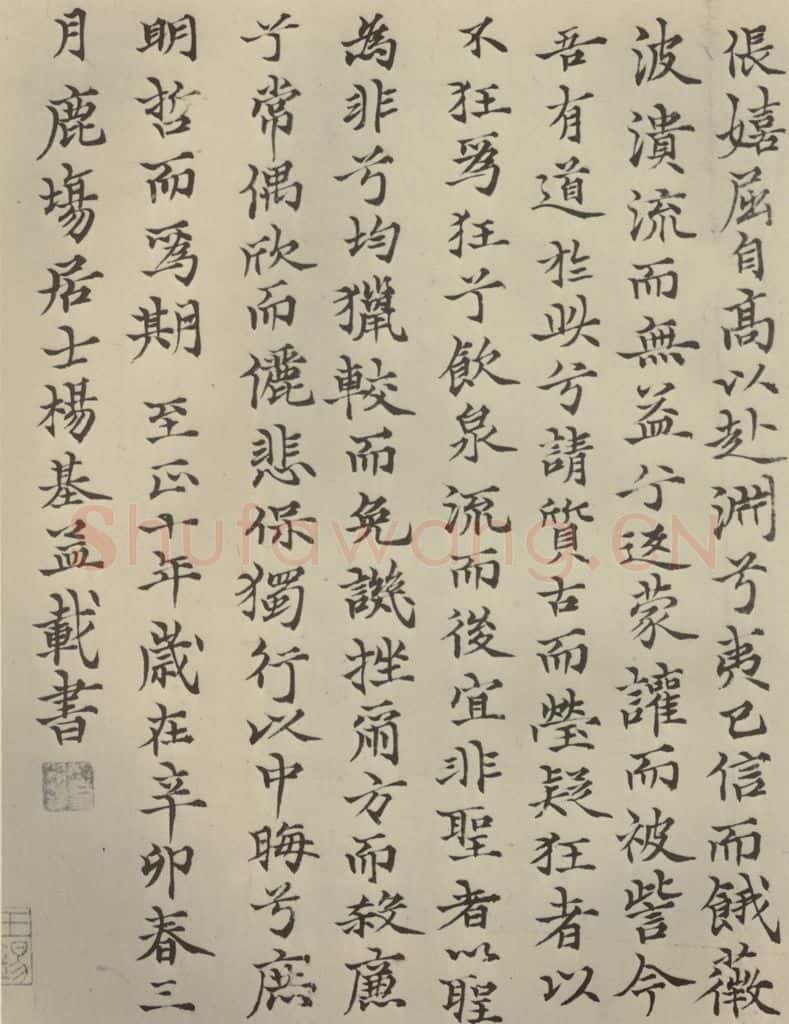 倀嬉屈自高以赴淵兮夷巳信而餓薇
波潰流而無益兮返蒙讙而被訾今
吾有道於此兮請質古而瑩疑狂者以
不狂爲狂兮飲泉流而後宜非聖者以聖
為非兮均獵較而免譏挫爾方而殺廉
兮常偶欣而儷悲保獨行以中晦兮庶
明哲而爲期 至正十年歲在辛卯春三
月鹿場居士楊基益載書
Shufawang.CN